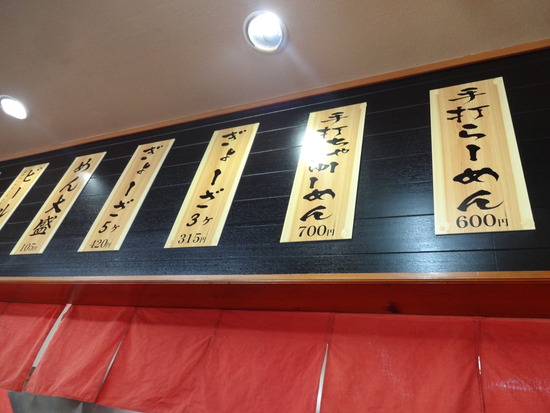 手打らーめん
600円
手打ちゃーめん
700円
ぎょーざ3ヶ
315円
ぎょーざ5ヶ
420円
めん大盛
105円
ビール